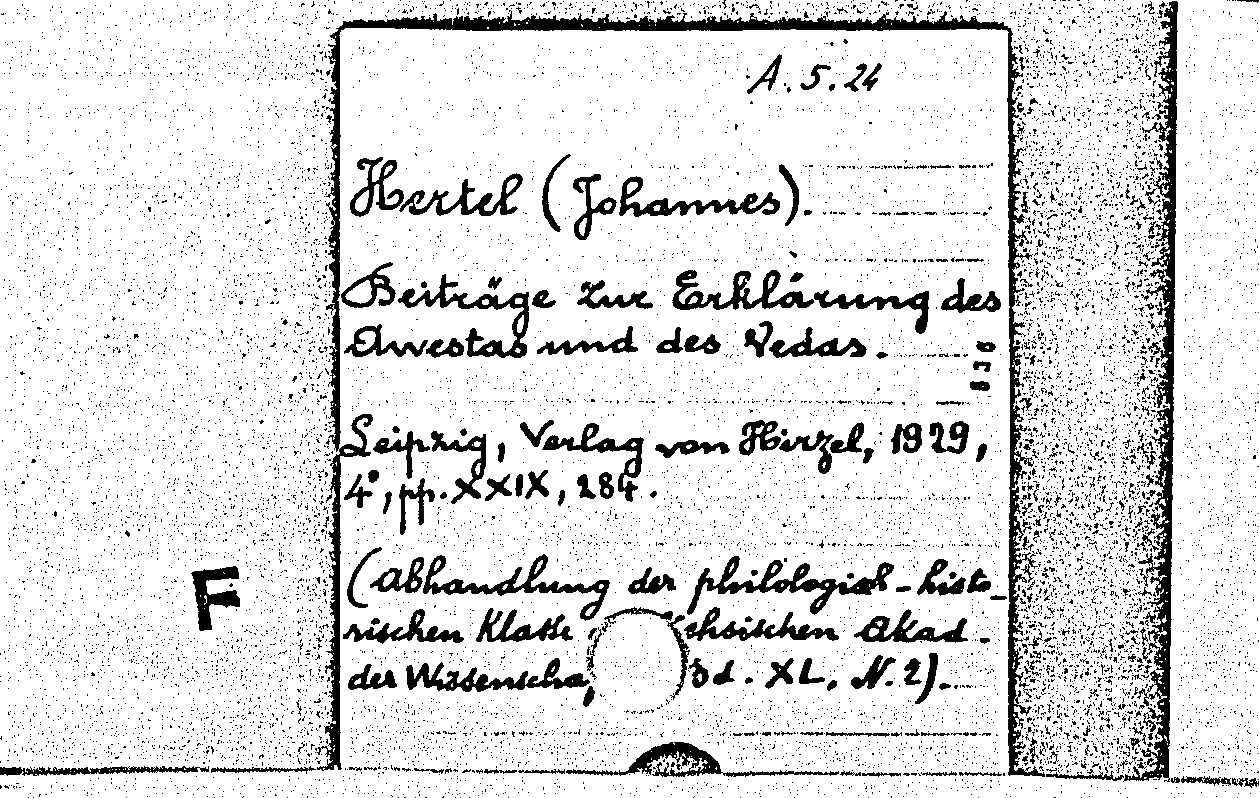 A.5.24
Hertel (Johannes).
Beiträge zur Erklärung des
Awestas und des Vedas.
836
Leipzig, Verlag von Hirzel, 1929,
4°, pp. XXIX, 284.
(Abhandlung der philologisch-histo-
rischen Klasse chsischen Akad.
der Wissenscha Bd. XL, N.2).
F